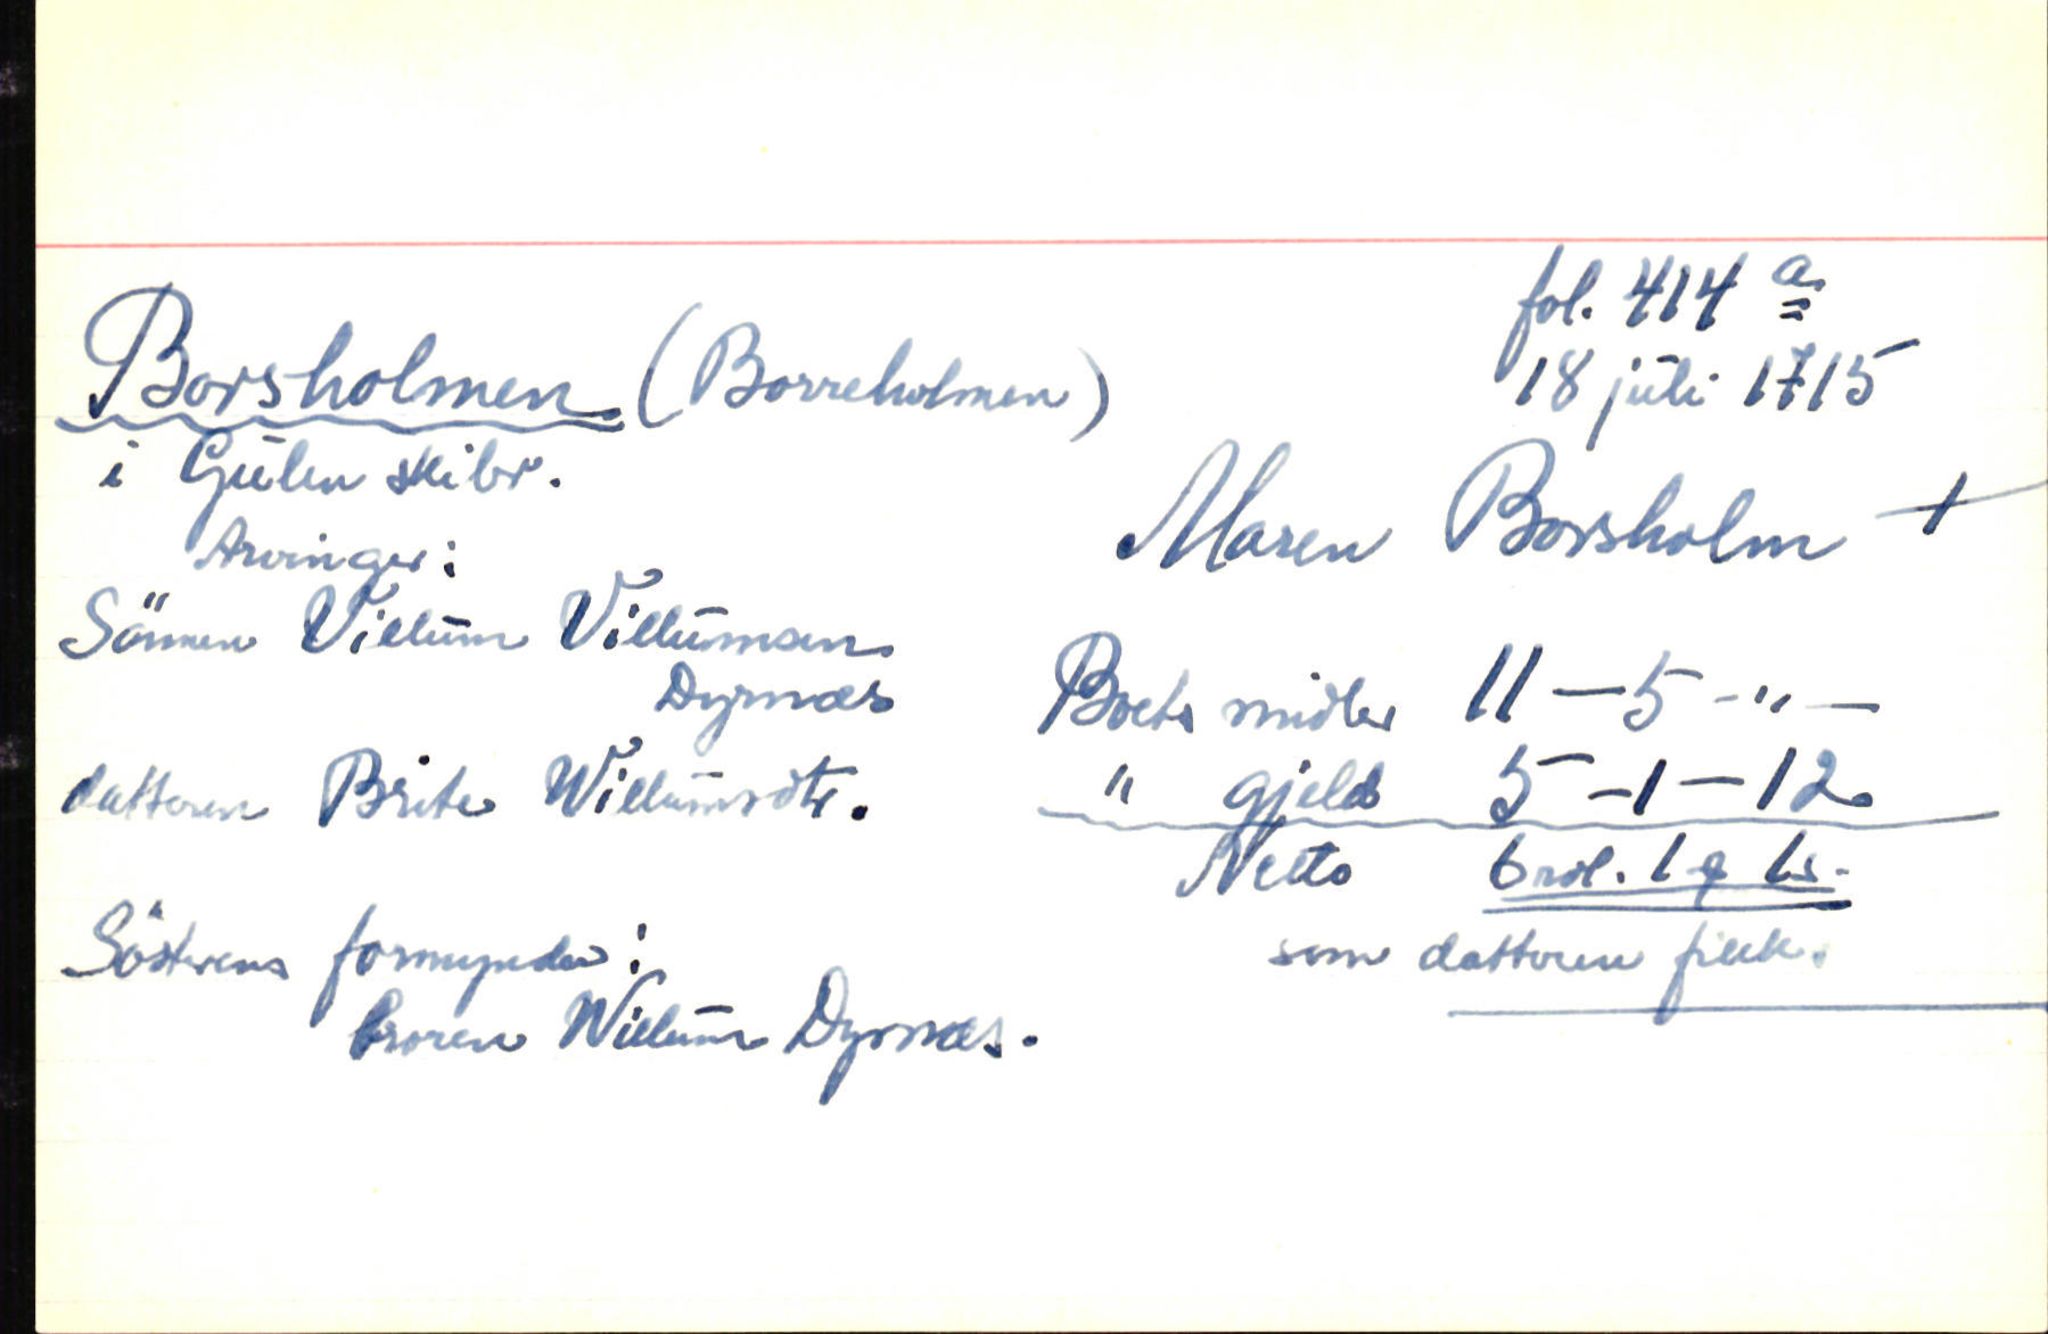 fol. 414 a
18 juli 1715
Borsholmen (Borreholmen)
i Gulen skibr.
Arvinger:
Sönnen Villum Villumsen
Dyrnæs
datteren Brite Willumsdtr.
Söstrens formynder:
broren Willum Dyrnæs.
Maren Borsholm +
Boets midler 11 — 5 - " —
" gjeld 5 — 1 — 12
Netto 6 rdl. 1 1 s.
som datteren fikk.